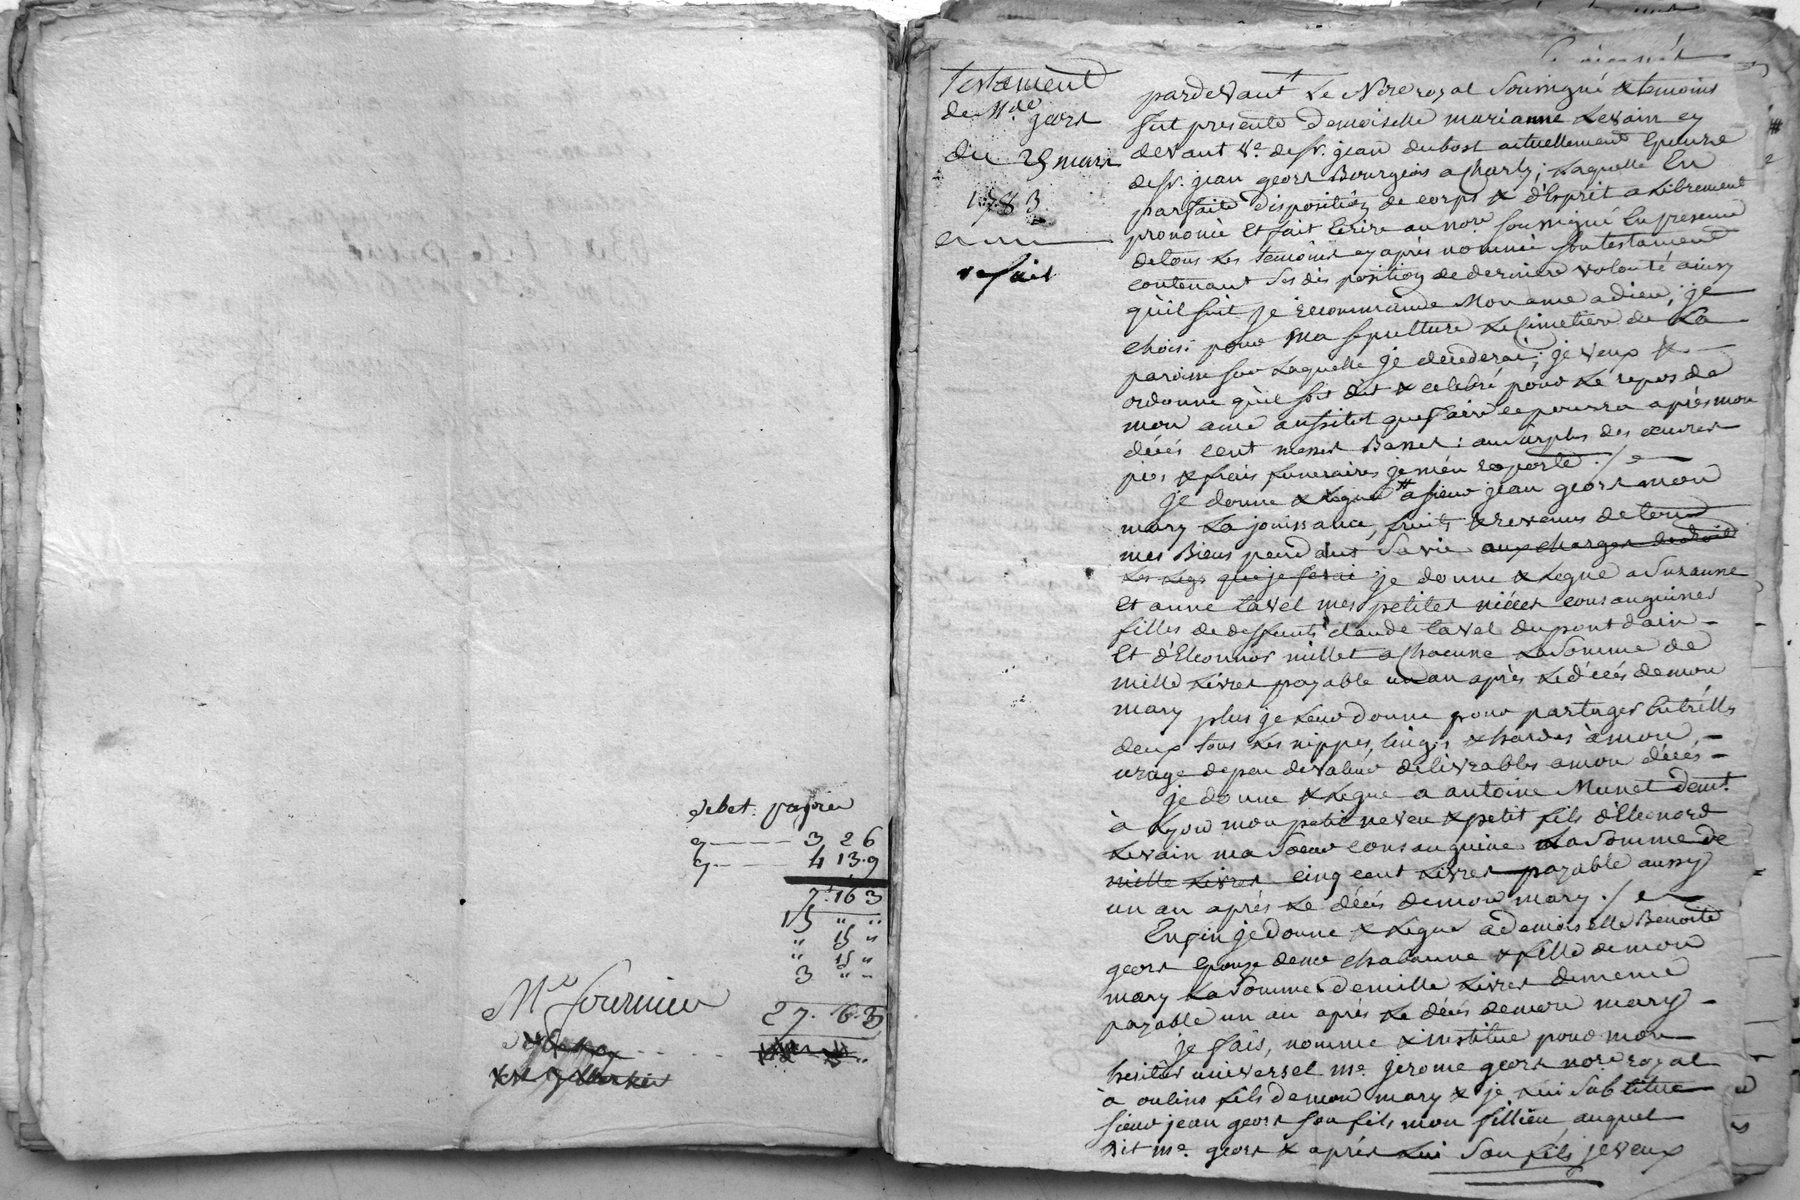 debet papier
3 2 6
4 13 . 9
7 . 16 3
15 " "
" 15 "
" 15 "
3 " "
27 . 16 . 3
Me fournier
testament
de Mde geors
du 25 mars
1783
refait
pardevant Le Nre royal soussigné & temoins
fut presente demoiselle marianne Levain cy
devant Ve. de sr. jean dubost actuellement Epouse
de sr. jean geors Bourgeois a Charly; Laquelle En
parfaite disposition de corps & d'Esprit a Librement
prononcé Et fait Ecrire au nore soussigné En presence
de tous Les temoins cy après nommés son testament
contenant ses dispositions de derniere volonté ainsy
qu'il suit, je recommande Mon ame a dieu, je
choisi pour Ma sepulture Le Cimetiere de La
paroisse sur Laquelle je decederai; je veux &
ordonne qu'il soit dit & celebré pour Le repos de
mon ame aussitot que faire ce pourra après mon
décés cent messes Basses: au surplus des œuvres
pies & frais funeraires je m'en raporte ./.
je donne & Legue # a sieur jean geors mon
mary La jouissance, fruits & revenus de tous
mes Biens pendant sa vie aux charges
Les Legs que je ferai je donne & Legue a Suzanne
Et anne tavel mes petites niéces consanguines
filles de deffunts claude tavel du pont d'ain
Et d'Eleonnor millet a Chacune La Somme de
mille Livres payable un an après Le décés de mon
mary plus je Leur donne pour partager Entr'Elles
deux tous Les nippes, linges & hardes à mon
usage de peu de valeur delivrables a mon décés
je donne & Legue a antoine Munet demt.
à Lyon mon petit neveu & petit fils d'Eleonord
Levain ma sœur consanguine La Somme de
mille Livres cinq cent Livres payable aussy
un an aprés Le décés de mon mary ./.
Enfin je donne & Legue a demoiselle Benoite
geors Epouse de mr chabanne & fille de mon
mary La Somme de mille Livres de meme
payable un an après Le décés de mon mary
je fais, nomme & institue pour mon
heritier universel me. jerome geors nore royal
à oulins fils de mon mary & je Lui substitue
sieur jean geors son fils mon fillieu auquel
dit me. geors & aprés Lui son fils je veux